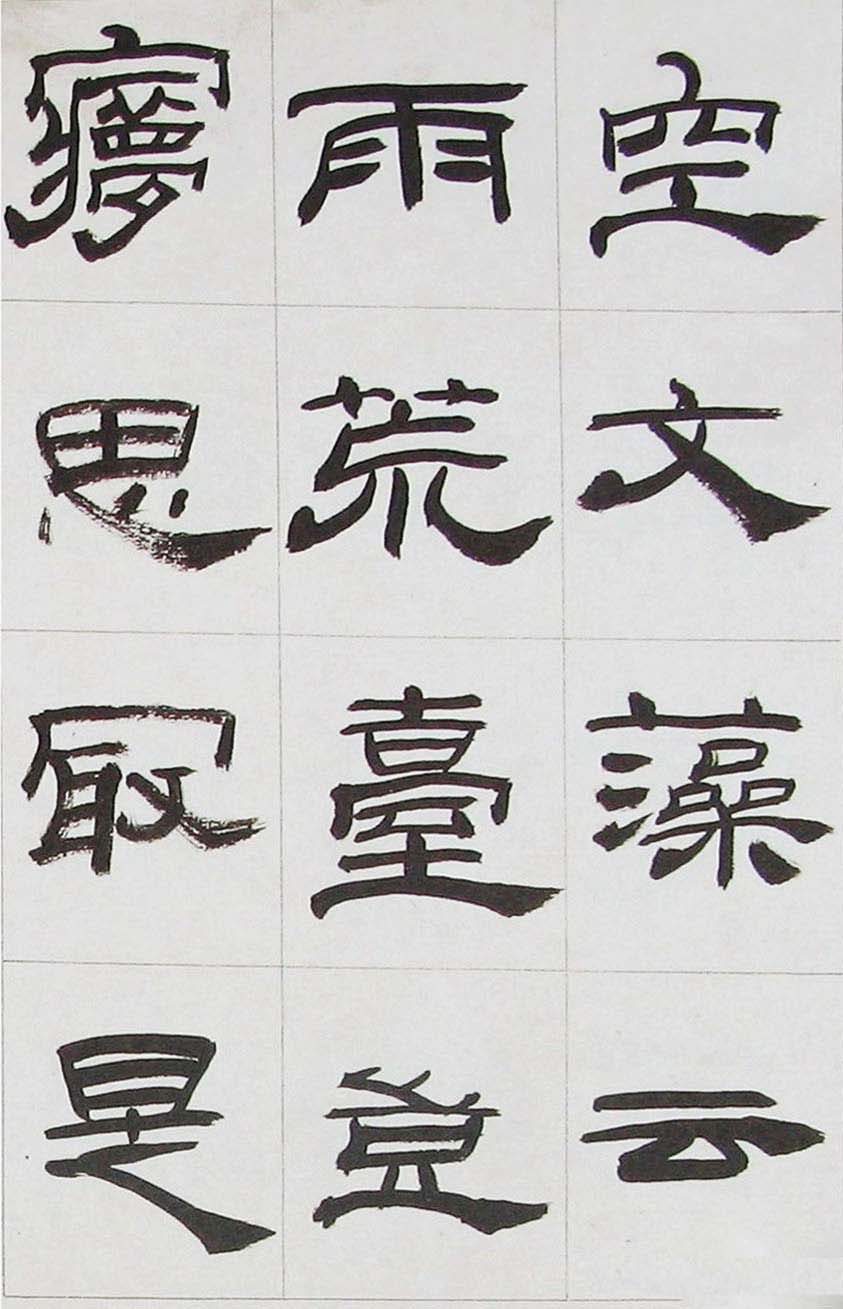 空文藻云
雨荒臺豈
㝱思冣是